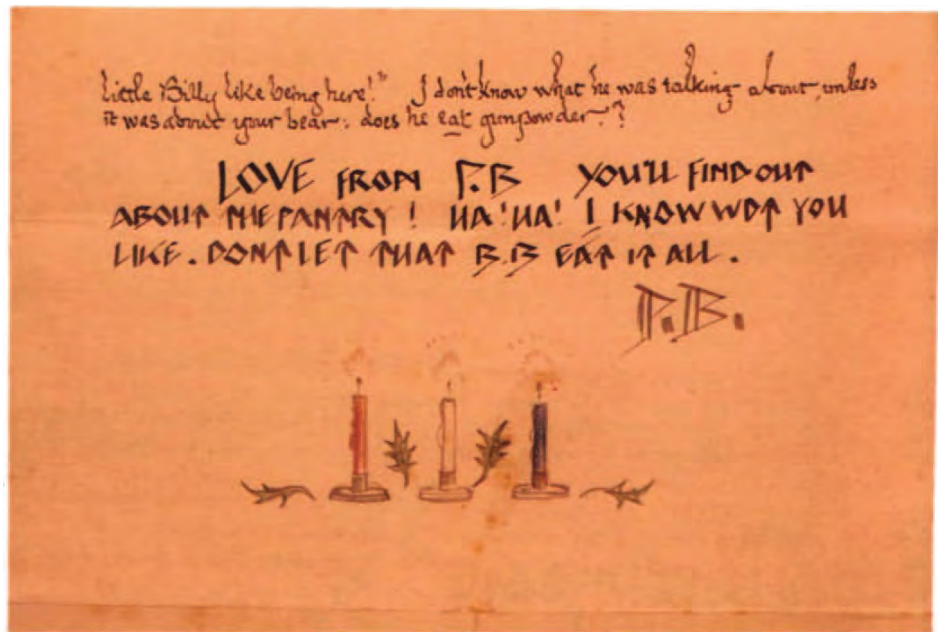 little Billy like being here!" I don't know what he was talking about, unless
it was about your bear: does he eat gunpowder?
LOVE FROM P.B YOU'LL FIND OUT
ABOUT THE PANTRY! HA! HA! I KNOW WOT YOU
LIKE. DONT LET THAT B.B EAT IT ALL.
P.B.